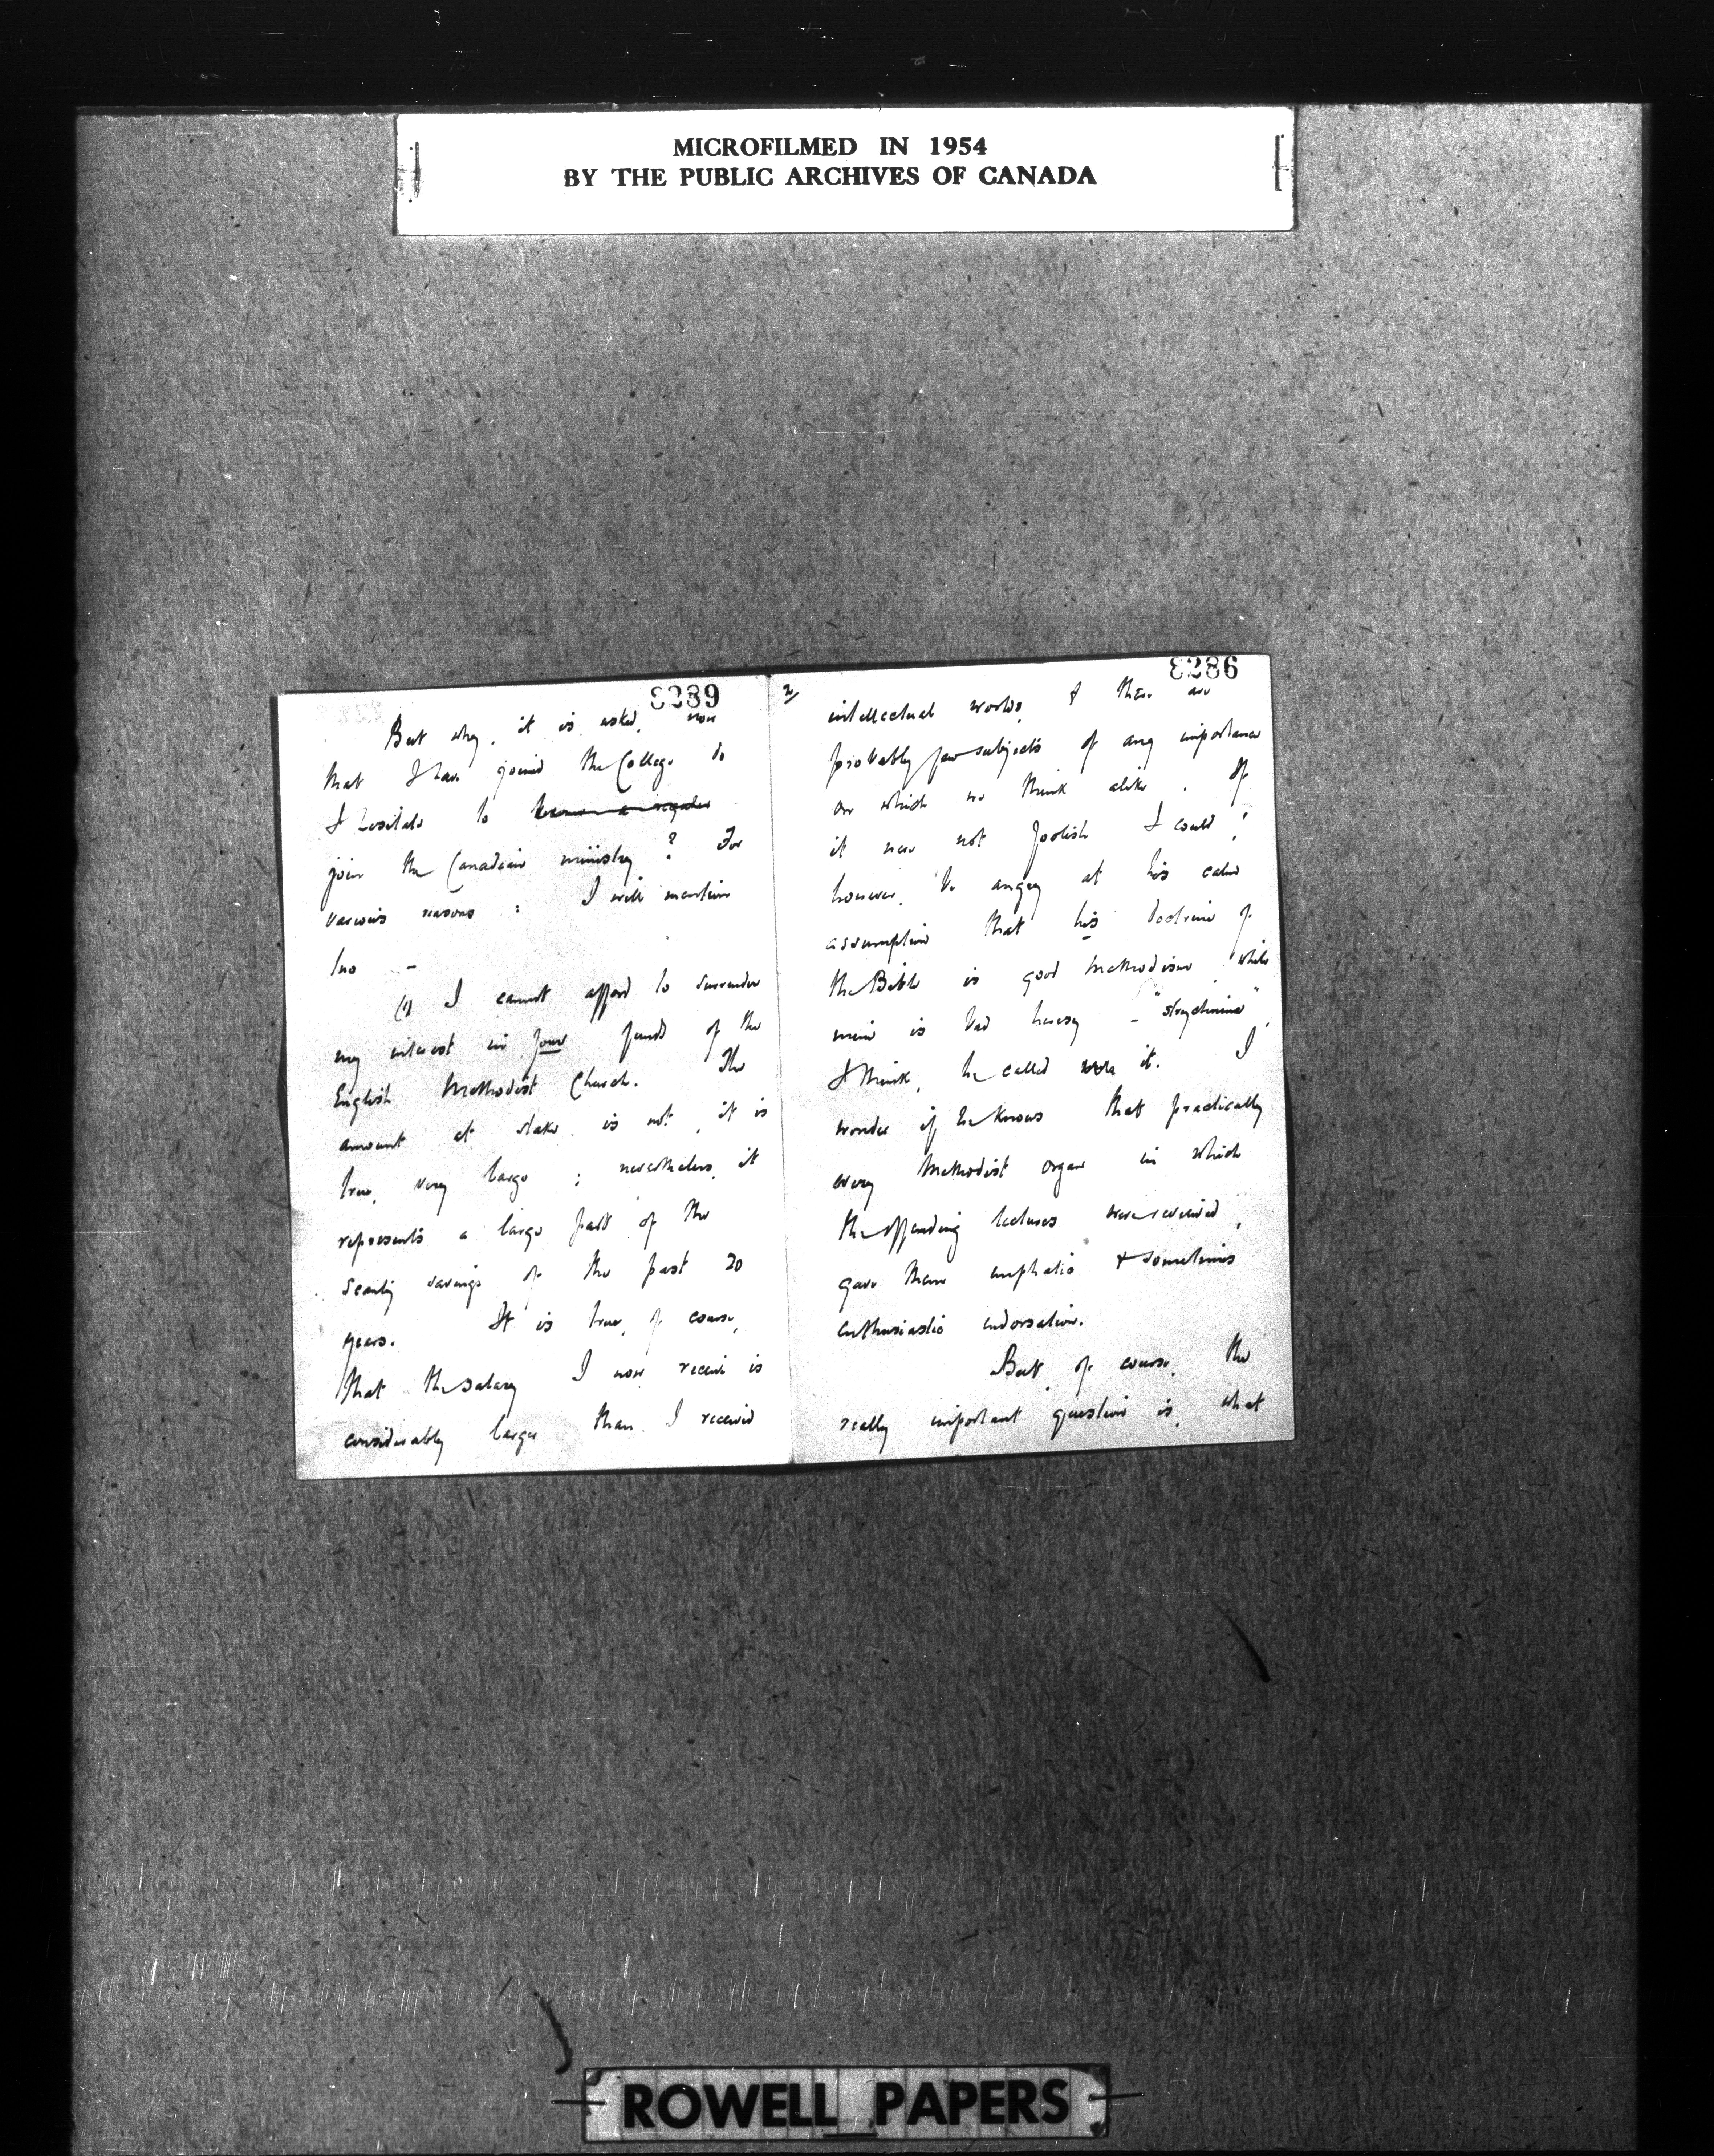 MICROFILMED IN 1954
BY THE PUBLIC ARCHIVES OF CANADA
3289
But why, it is asked, now
that I have joined the College do
I hesitate to ~~become a regular~~
join the Canadian ministry? For
various reasons: I will mention
two –
(1) I cannot afford to surrender
my interest in four funds of the
English Methodist Church. The
amount at stake is not, it is
true, very large; nevertheless, it
represents a large part of the
scanty savings of the past 20
years. It is true, of course,
that the salary I now receive is
considerably larger than I received
3286
2/
intellectual worlds, & there are
probably few subjects of any importance
on which we think alike. If
it were not foolish I could,
however, be angry at his calm
assumption that his doctrine of
the Bible is good Methodism, while
mine is bad heresy – "strychnine",
I think, he called it. I
wonder if he knows that practically
every Methodist organ in which
the offending lectures were reviewed,
gave them emphatic & sometimes
enthusiastic endorsation.
But, of course, the
really important question is, what
ROWELL PAPERS